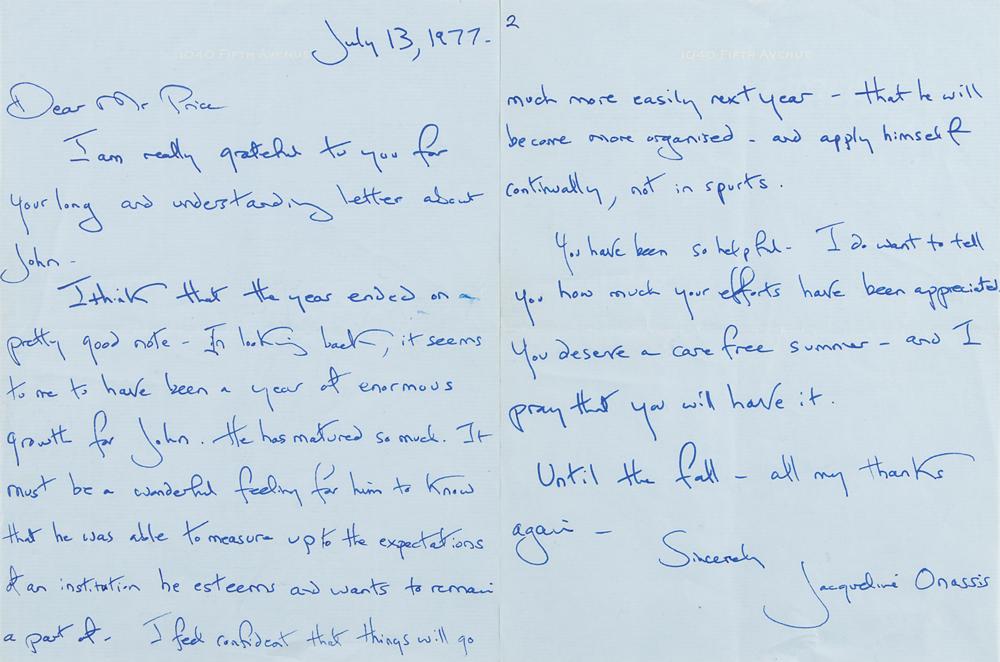 1040 FIFTH AVENUE
July 13, 1977-
Dear Mr Price
I am really grateful to you for
your long and understanding letter about
John -
I think that the year ended on a
pretty good note - In looking back, it seems
to me to have been a year of enormous
growth for John. He has matured so much. It
must be a wonderful feeling for him to know
that he was able to measure up to the expectations
of an institution he esteems and wants to remain
a part of - I feel confident that things will go
2
1040 FIFTH AVENUE
much more easily next year - that he will
become more organised - and apply himself
continually, not in spurts.
You have been so helpful - I do want to tell
you how much your efforts have been appreciated.
You deserve a care free summer - and I
pray that you will have it.
Until the fall - all my thanks
again -
Sincerely
Jacqueline Onassis